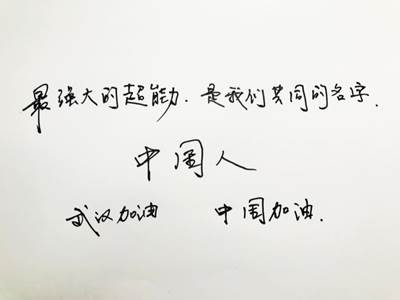 最强大的超能力.是我们共同的名字.
中国人
武汉加油 中国加油.